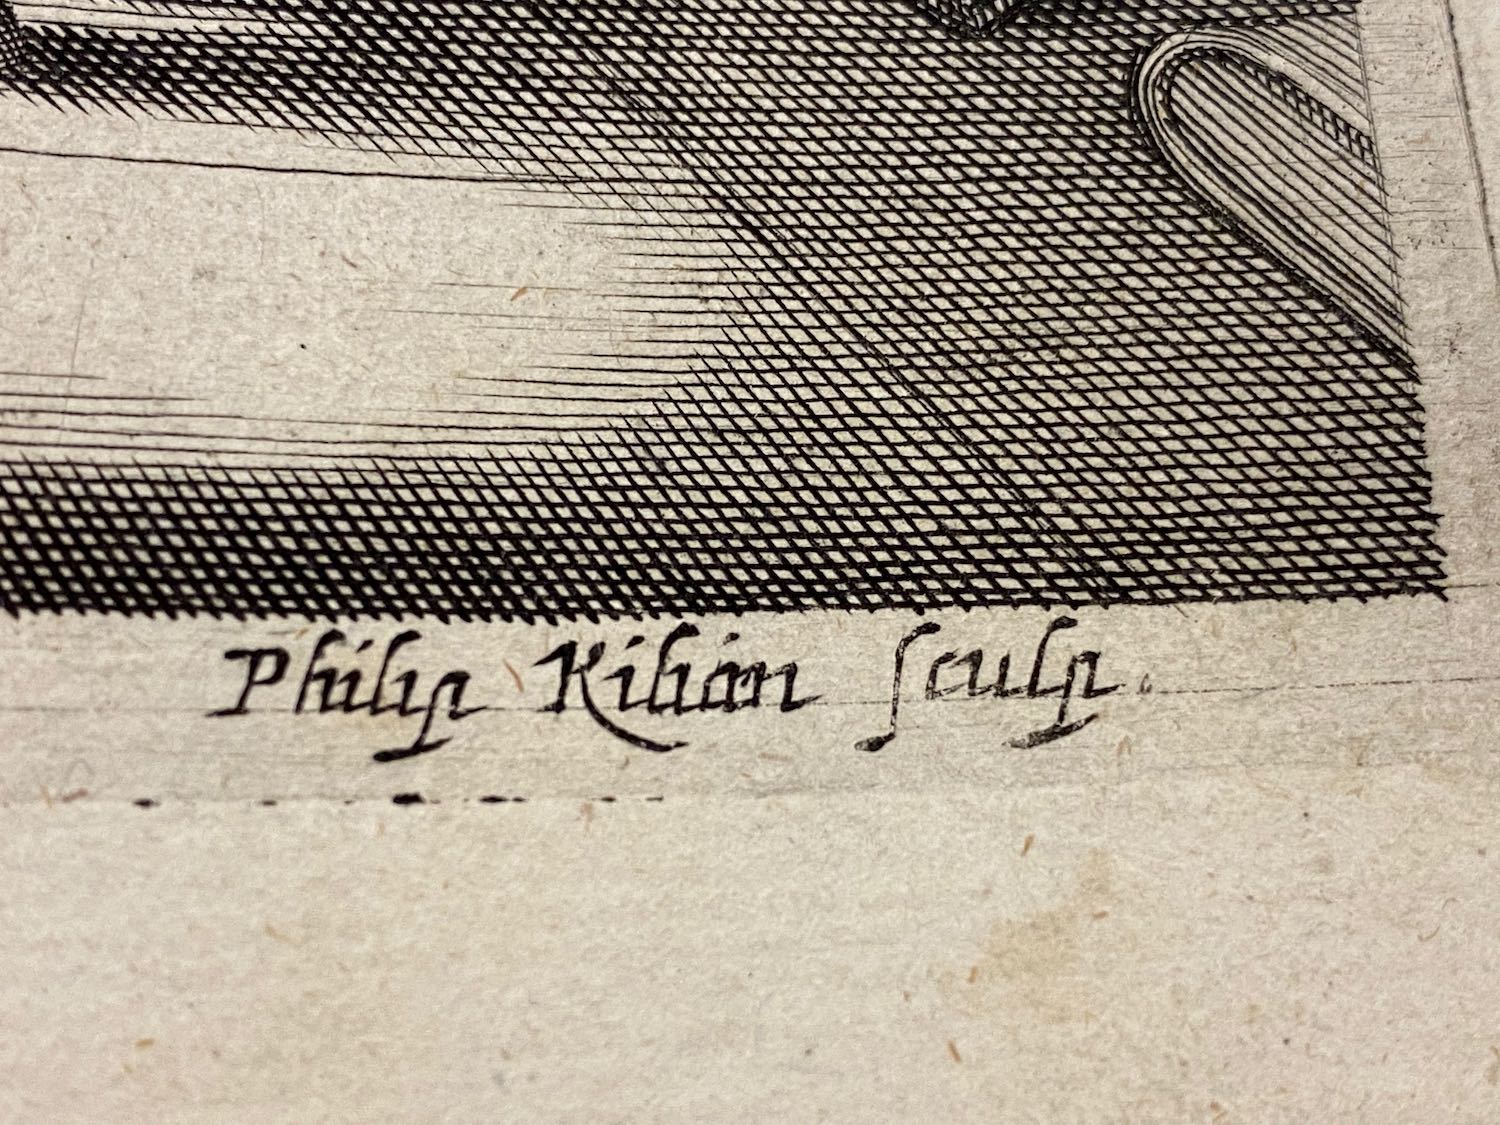 Philip Kilian ſculp.